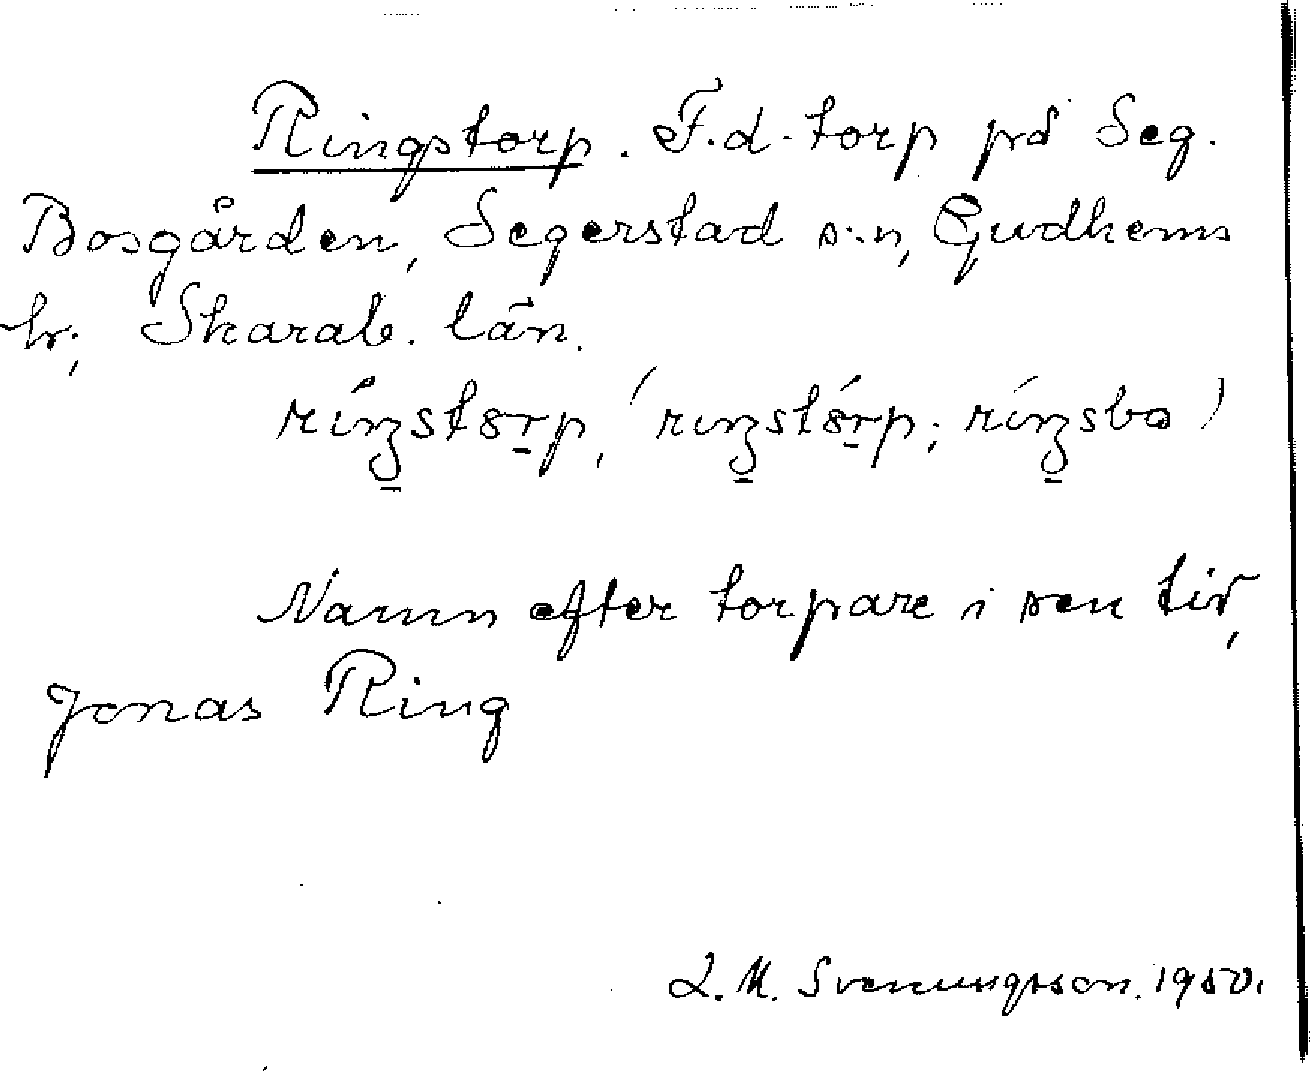 Ringstorp. F.d. torp på Seg.
Bosgården, Segerstad s:n, Gudhems
hr; Skarab. län.
Namn efter torpare i sen tid,
Jonas Ring
L. M. Svenungsson. 1950.